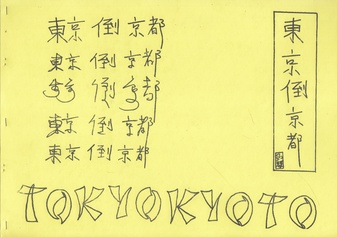 東京 倒 京都
東京 倒 京都
東京 倒 京都
東京 倒 京都
東京 倒 京都
東京倒京都
TOKYOKYOTO